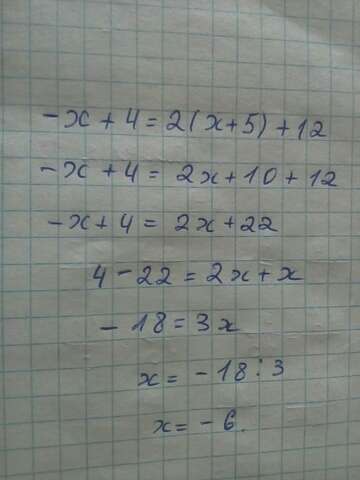 -x + 4 = 2(x+5) + 12
-x + 4 = 2x + 10 + 12
-x + 4 = 2x + 22
4 - 22 = 2x + x
- 18 = 3x
x = - 18 : 3
x = - 6.